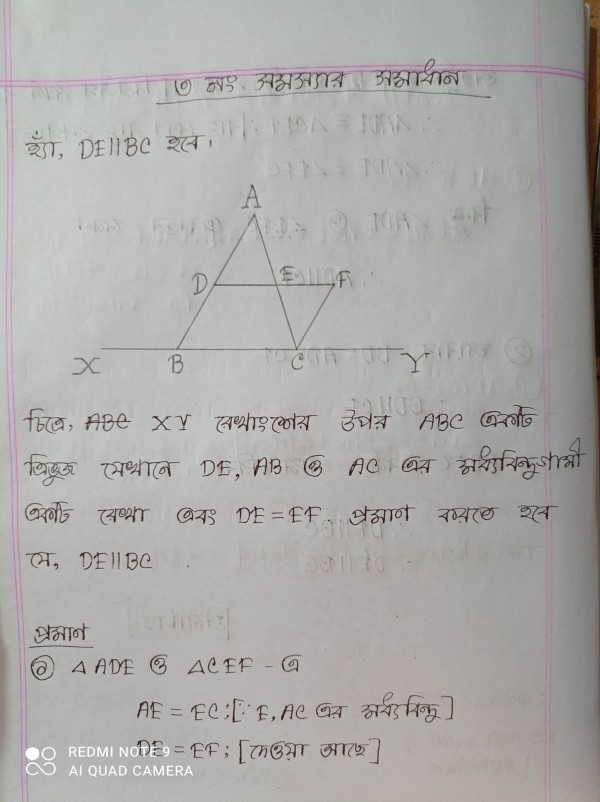 ৩ নং সমস্যার সমাধান
হ্যাঁ, DE||BC হবে।
A
D E F
X B C Y
চিত্রে, ABC XY রেখাংশের উপর ABC একটি
ত্রিভুজ যেখানে DE, AB ও AC এর মধ্যবিন্দুগামী
একটি রেখা এবং DE = EF. প্রমাণ করতে হবে
যে, DE||BC .
প্রমান
① △ ADE ও △CEF - এ
AE = EC; [∵ E, AC এর মধ্যবিন্দু]
DE = EF; [দেওয়া আছে]
REDMI NOTE 9
AI QUAD CAMERA